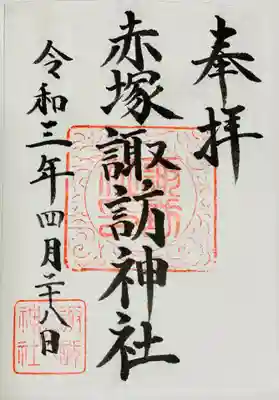 奉拝
赤塚諏訪神社
令和三年四月二十八日
諏訪神社